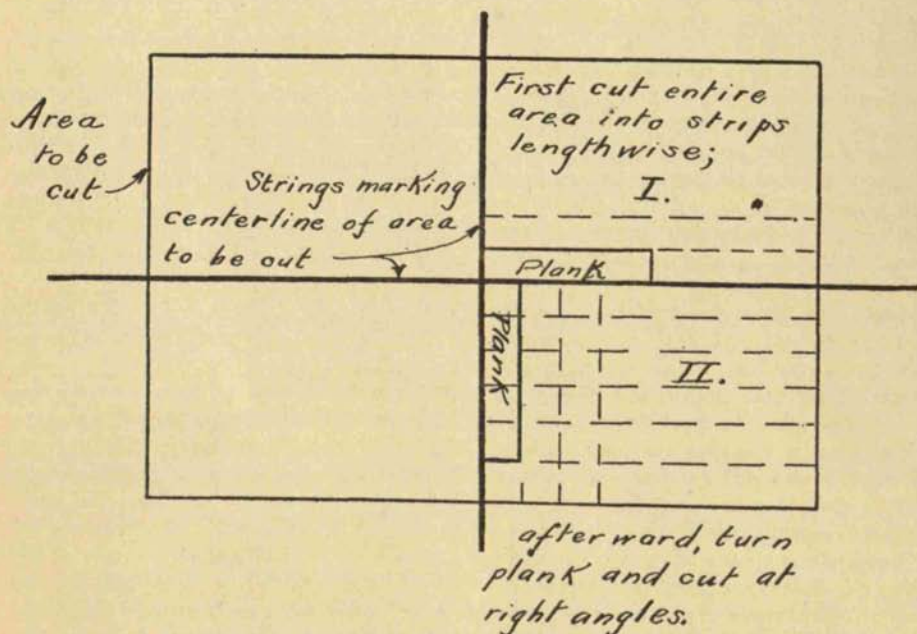 Area
to be
cut
Strings marking
centerline of area
to be out
First cut entire
area into strips
lengthwise;
I.
Plank
Plank
II.
afterward, turn
plank and cut at
right angles.